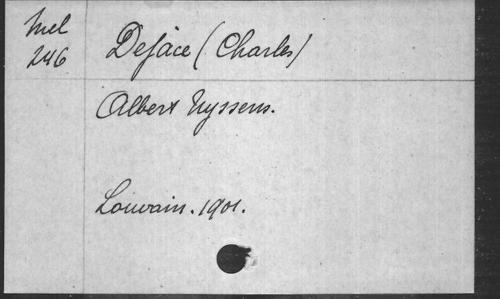 Mel
246
Dejace (Charles)
Albert Nyssens.
Louvain. 1901.